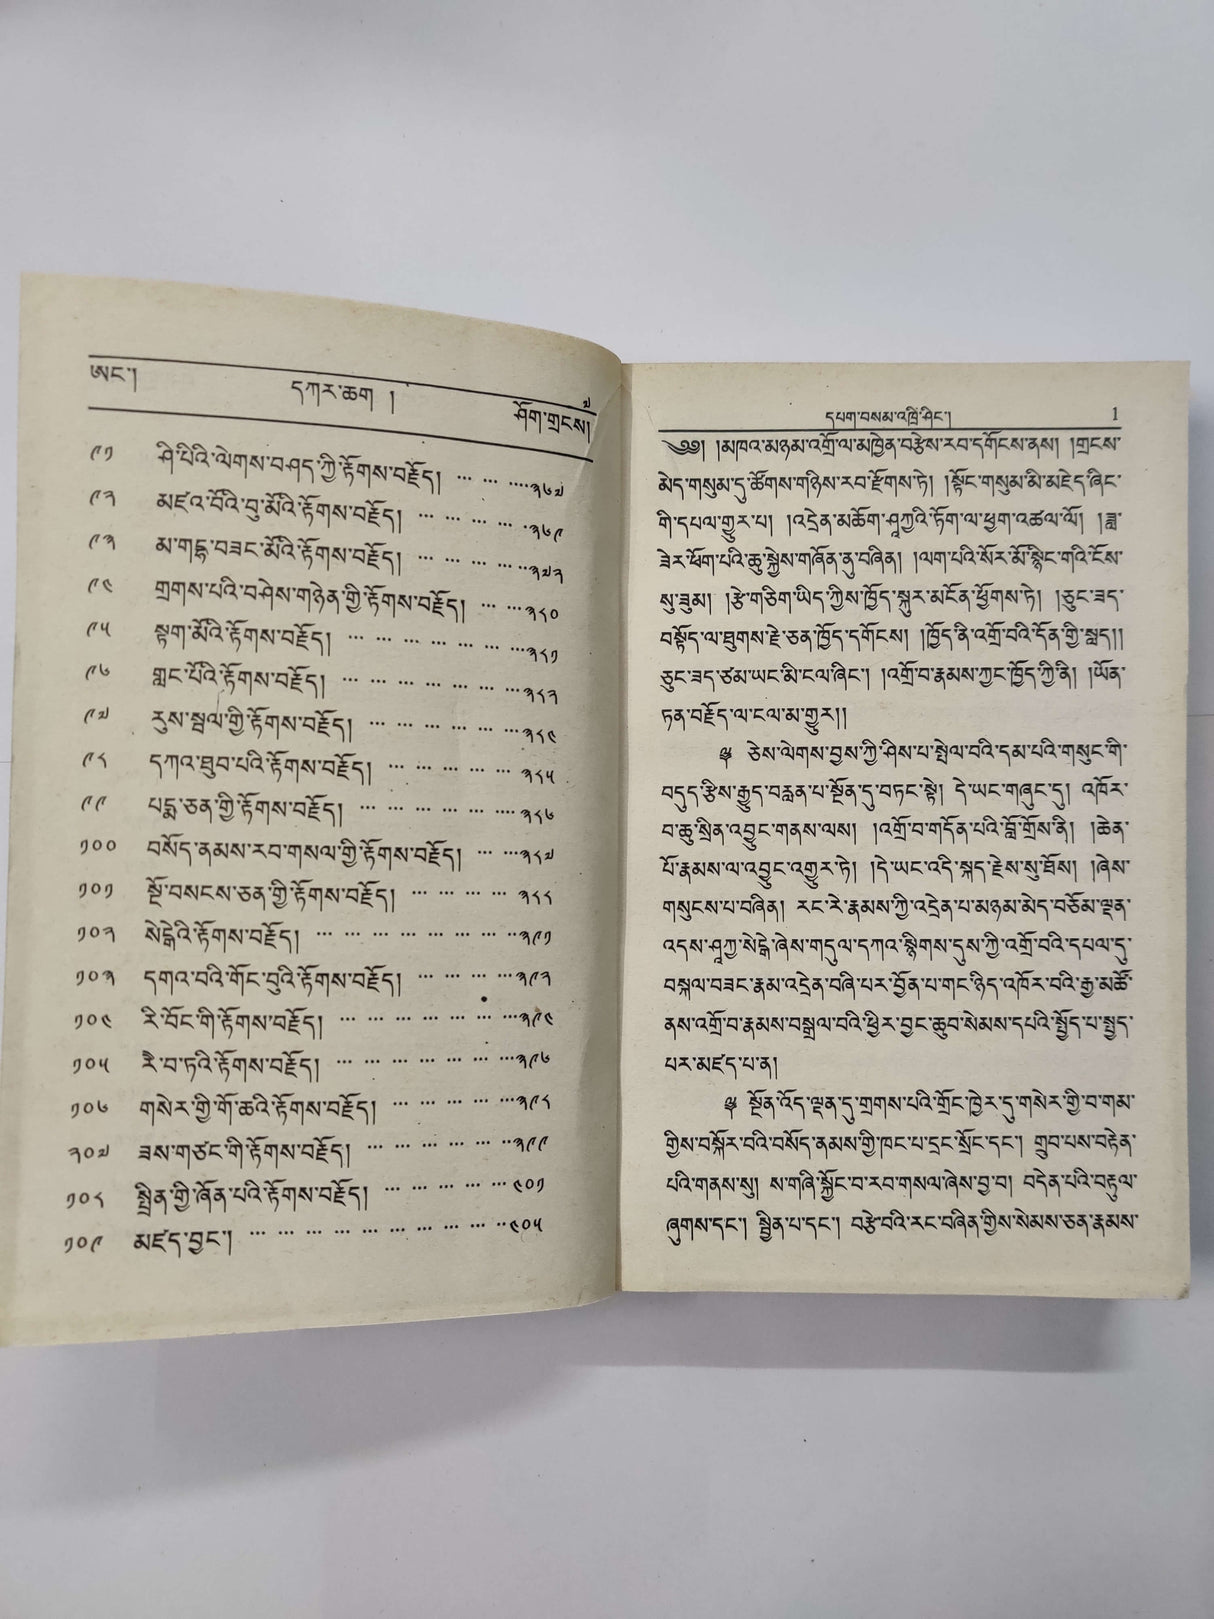 ཨང་། དཀར་ཆག ། ཤོག་གྲངས། ༧
༩༡ ཤི་པིའི་ལེགས་བཤད་ཀྱི་རྟོགས་བརྗོད། … … ….༣༦༧
༩༢ མཛའ་བོའི་བུ་མོའི་རྟོགས་བརྗོད། … … … … …༣༦༩
༩༣ མ་གདྷ་བཟང་མོའི་རྟོགས་བརྗོད། … … … ….༣༧༢
༩༤ གྲགས་པའི་བཤེས་གཉེན་གྱི་རྟོགས་བརྗོད། … …༣༨༠
༩༥ སྟག་མོའི་རྟོགས་བརྗོད། … … … … … … …༣༨༡
༩༦ གླང་པོའི་རྟོགས་བརྗོད། … … … … … … …༣༨༢
༩༧ རུས་སྦལ་གྱི་རྟོགས་བརྗོད། … … … … … …༣༨༤
༩༨ དཀའ་ཐུབ་པའི་རྟོགས་བརྗོད། … … … … … ༣༨༥
༩༩ པདྨ་ཅན་གྱི་རྟོགས་བརྗོད། … … … … … ….༣༨༦
༡༠༠ བསོད་ནམས་རབ་གསལ་གྱི་རྟོགས་བརྗོད། … …༣༨༧
༡༠༡ སྔོ་བསངས་ཅན་གྱི་རྟོགས་བརྗོད། … … … … ༣༨༨
༡༠༢ སེངྒེའི་རྟོགས་བརྗོད། … … … … … … … …༣༩༡
༡༠༣ དགའ་བའི་གོང་བུའི་རྟོགས་བརྗོད། … … … …༣༩༢
༡༠༤ རི་བོང་གི་རྟོགས་བརྗོད། … … … … … … …༣༩༤
༡༠༥ རེ་བ་ཏའི་རྟོགས་བརྗོད། … … … … … … …༣༩༦
༡༠༦ གསེར་གྱི་གོ་ཆའི་རྟོགས་བརྗོད། … … … … …༣༩༨
༢༠༧ ཟས་གཙང་གི་རྟོགས་བརྗོད། … … … … … …༣༩༩
༡༠༨ སྤྲིན་གྱི་ཞོན་པའི་རྟོགས་བརྗོད། … … … … ….༤༠༡
༡༠༩ མཛད་བྱང་། … … … … … … … … … ..༤༠༥
དཔག་བསམ་འཁྲི་ཤིང་། 1
༄༅། །མཁའ་མཉམ་འགྲོ་ལ་མཁྱེན་བརྩེས་རབ་དགོངས་ནས། །གྲངས་
མེད་གསུམ་དུ་ཚོགས་གཉིས་རབ་རྫོགས་ཏེ། །སྟོང་གསུམ་མི་མཇེད་ཞིང་
གི་དཔལ་གྱུར་པ། །འདྲེན་མཆོག་ཤཱཀྱའི་ཏོག་ལ་ཕྱག་འཚལ་ལོ། །ཟླ་
ཟེར་ཕོག་པའི་ཆུ་སྐྱེས་གཞོན་ནུ་བཞིན། །ལག་པའི་སོར་མོ་སྙིང་གའི་ངོས་
སུ་ཟུམ། །རྩེ་གཅིག་ཡིད་ཀྱིས་ཁྱོད་སྐུར་མངོན་ཕྱོགས་ཏེ། །ཅུང་ཟད་
བསྟོད་ལ་ཐུགས་རྗེ་ཅན་ཁྱོད་དགོངས། །ཁྱོད་ནི་འགྲོ་བའི་དོན་གྱི་སླད།།
ཅུང་ཟད་ཙམ་ཡང་མི་ངལ་ཞིང་། །འགྲོ་བ་རྣམས་ཀྱང་ཁྱོད་ཀྱི་ནི། །ཡོན་
ཏན་བརྗོད་ལ་ངལ་མ་གྱུར།།
༈ ཅེས་ལེགས་བྱས་ཀྱི་ཤིས་པ་སྤེལ་བའི་དམ་པའི་གསུང་གི་
བདུད་རྩིས་རྒྱུད་བརླན་པ་སྔོན་དུ་བཏང་སྟེ། དེ་ཡང་གཞུང་དུ། འཁོར་
བ་ཆུ་སྲིན་འབྱུང་གནས་ལས། །འགྲོ་བ་གདོན་པའི་བློ་གྲོས་ནི། །ཆེན་
པོ་རྣམས་ལ་འབྱུང་འགྱུར་ཏེ། །དེ་ཡང་འདི་སྐད་རྗེས་སུ་ཐོས། །ཞེས་
གསུངས་པ་བཞིན། རང་རེ་རྣམས་ཀྱི་འདྲེན་པ་མཉམ་མེད་བཅོམ་ལྡན་
འདས་ཤཱཀྱ་སེངྒེ་ཞེས་གདུལ་དཀའ་སྙིགས་དུས་ཀྱི་འགྲོ་བའི་དཔལ་དུ་
བསྐལ་བཟང་རྣམ་འདྲེན་བཞི་པར་བྱོན་པ་གང་ཉིད་འཁོར་བའི་རྒྱ་མཚོ་
ནས་འགྲོ་བ་རྣམས་བསྒྲལ་བའི་ཕྱིར་བྱང་ཆུབ་སེམས་དཔའི་སྤྱོད་པ་སྤྱད་
པར་མཛད་པ་ན།
༈ སྔོན་འོད་ལྡན་དུ་གྲགས་པའི་གྲོང་ཁྱེར་དུ་གསེར་གྱི་བ་གམ་
གྱིས་བསྐོར་བའི་བསོད་ནམས་ཀྱི་ཁང་པ་དྲང་སྲོང་དང་། གྲུབ་པས་བརྟེན་
པའི་གནས་སུ། ས་གཞི་སྐྱོང་བ་རབ་གསལ་ཞེས་བྱ་བ། བདེན་པའི་བརྟུལ་
ཞུགས་དང་། སྦྱིན་པ་དང་། བརྩེ་བའི་རང་བཞིན་གྱིས་སེམས་ཅན་རྣམས་